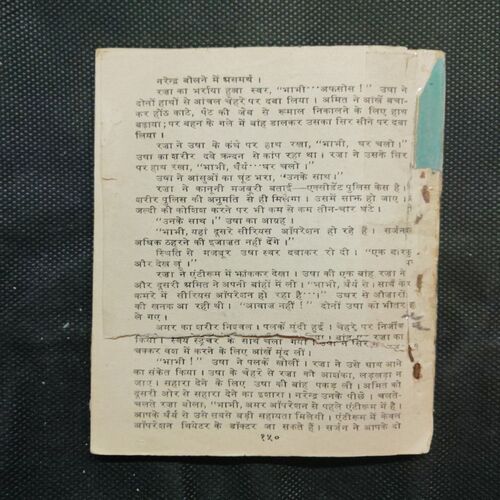 नरेन्द्र बोलने में असमर्थ ।
रजा का भर्राया हुआ स्वर, "भाभी···अफसोस !" उषा ने
दोनों हाथों से आंचल चेहरे पर दबा लिया । अमित ने आंखें बचा-
कर होंठ काटे, पेंट की जेब से रूमाल निकालने के लिए हाथ
बढ़ाया; पर बहन के गले में बांह डालकर उसका सिर सीने पर दबा
लिया ।
रजा ने उषा के कंधे पर हाथ रखा, "भाभी, घर चलो ।"
उषा का शरीर दबे क्रन्दन से कांप रहा था । रजा ने उसके सिर
पर हाथ रखा, "भाभी, धैर्य···घर चल ।"
उषा ने आंसुओं का घूंट भरा, "उनके साथ ।"
रजा ने कानूनी मजबूरी बताई—एक्सीडेंट पुलिस केस है ।
शरीर पुलिस की अनुमति से ही मिलेगा । उसमें साझ हो जाए ।
जल्दी की कोशिश करने पर भी कम से कम तीन-चार घंटे ।
"उनके साथ ।" उषा का आग्रह ।
"भाभी, यहां दूसरे सीरियस ऑपरेशन हो रहे हैं । सर्जन
अधिक ठहरने की इजाजत नहीं देंगे ।"
स्थिति से मजबूर उषा स्वर दबाकर रो दी । "एक बार
और देख लूं ।"
रजा ने एंटीरूम में झांककर देखा । उषा की एक बांह रजा ने
और दूसरी अमित ने अपनी बांहों में ली । "भाभी, धैर्य से । सर्जन
कमरे में सीरियस ऑपरेशन हो रहा है···।" उधर से औजारों
की खनक आ रही थी । "आवाज नहीं !" दोनों उषा को भीतर
ले गए ।
अमर का शरीर निश्चल । पलकें मुंदी हुई । चेहरे पर निर्जीव
किया । स्वयं स्ट्रेचर के साथ चला गया । उषा ने सिर
चक्कर वश में करने के लिए आंखें मूंद लीं ।
"भाभी !" उषा ने पलकें खोलीं । रजा ने उसे साथ आने
का संकेत किया । उषा के चेहरे से रजा को आशंका, लड़खड़ा न
जाए । सहारा देने के लिए उषा की बांह पकड़ ली । अमित को
दूसरी ओर से सहारा देने का इशारा । नरेन्द्र उनके पीछे । चलते-
चलते रजा बोला, "भाभी, अमर ऑपरेशन से पहले एंटीरूम में है ।
आपके धैर्य से उसे सबसे बड़ी सहायता मिलेगी । एंटीरूम में केवल
ऑपरेशन थियेटर के डॉक्टर जा सकते हैं । सर्जन ने आपके दो
१५०